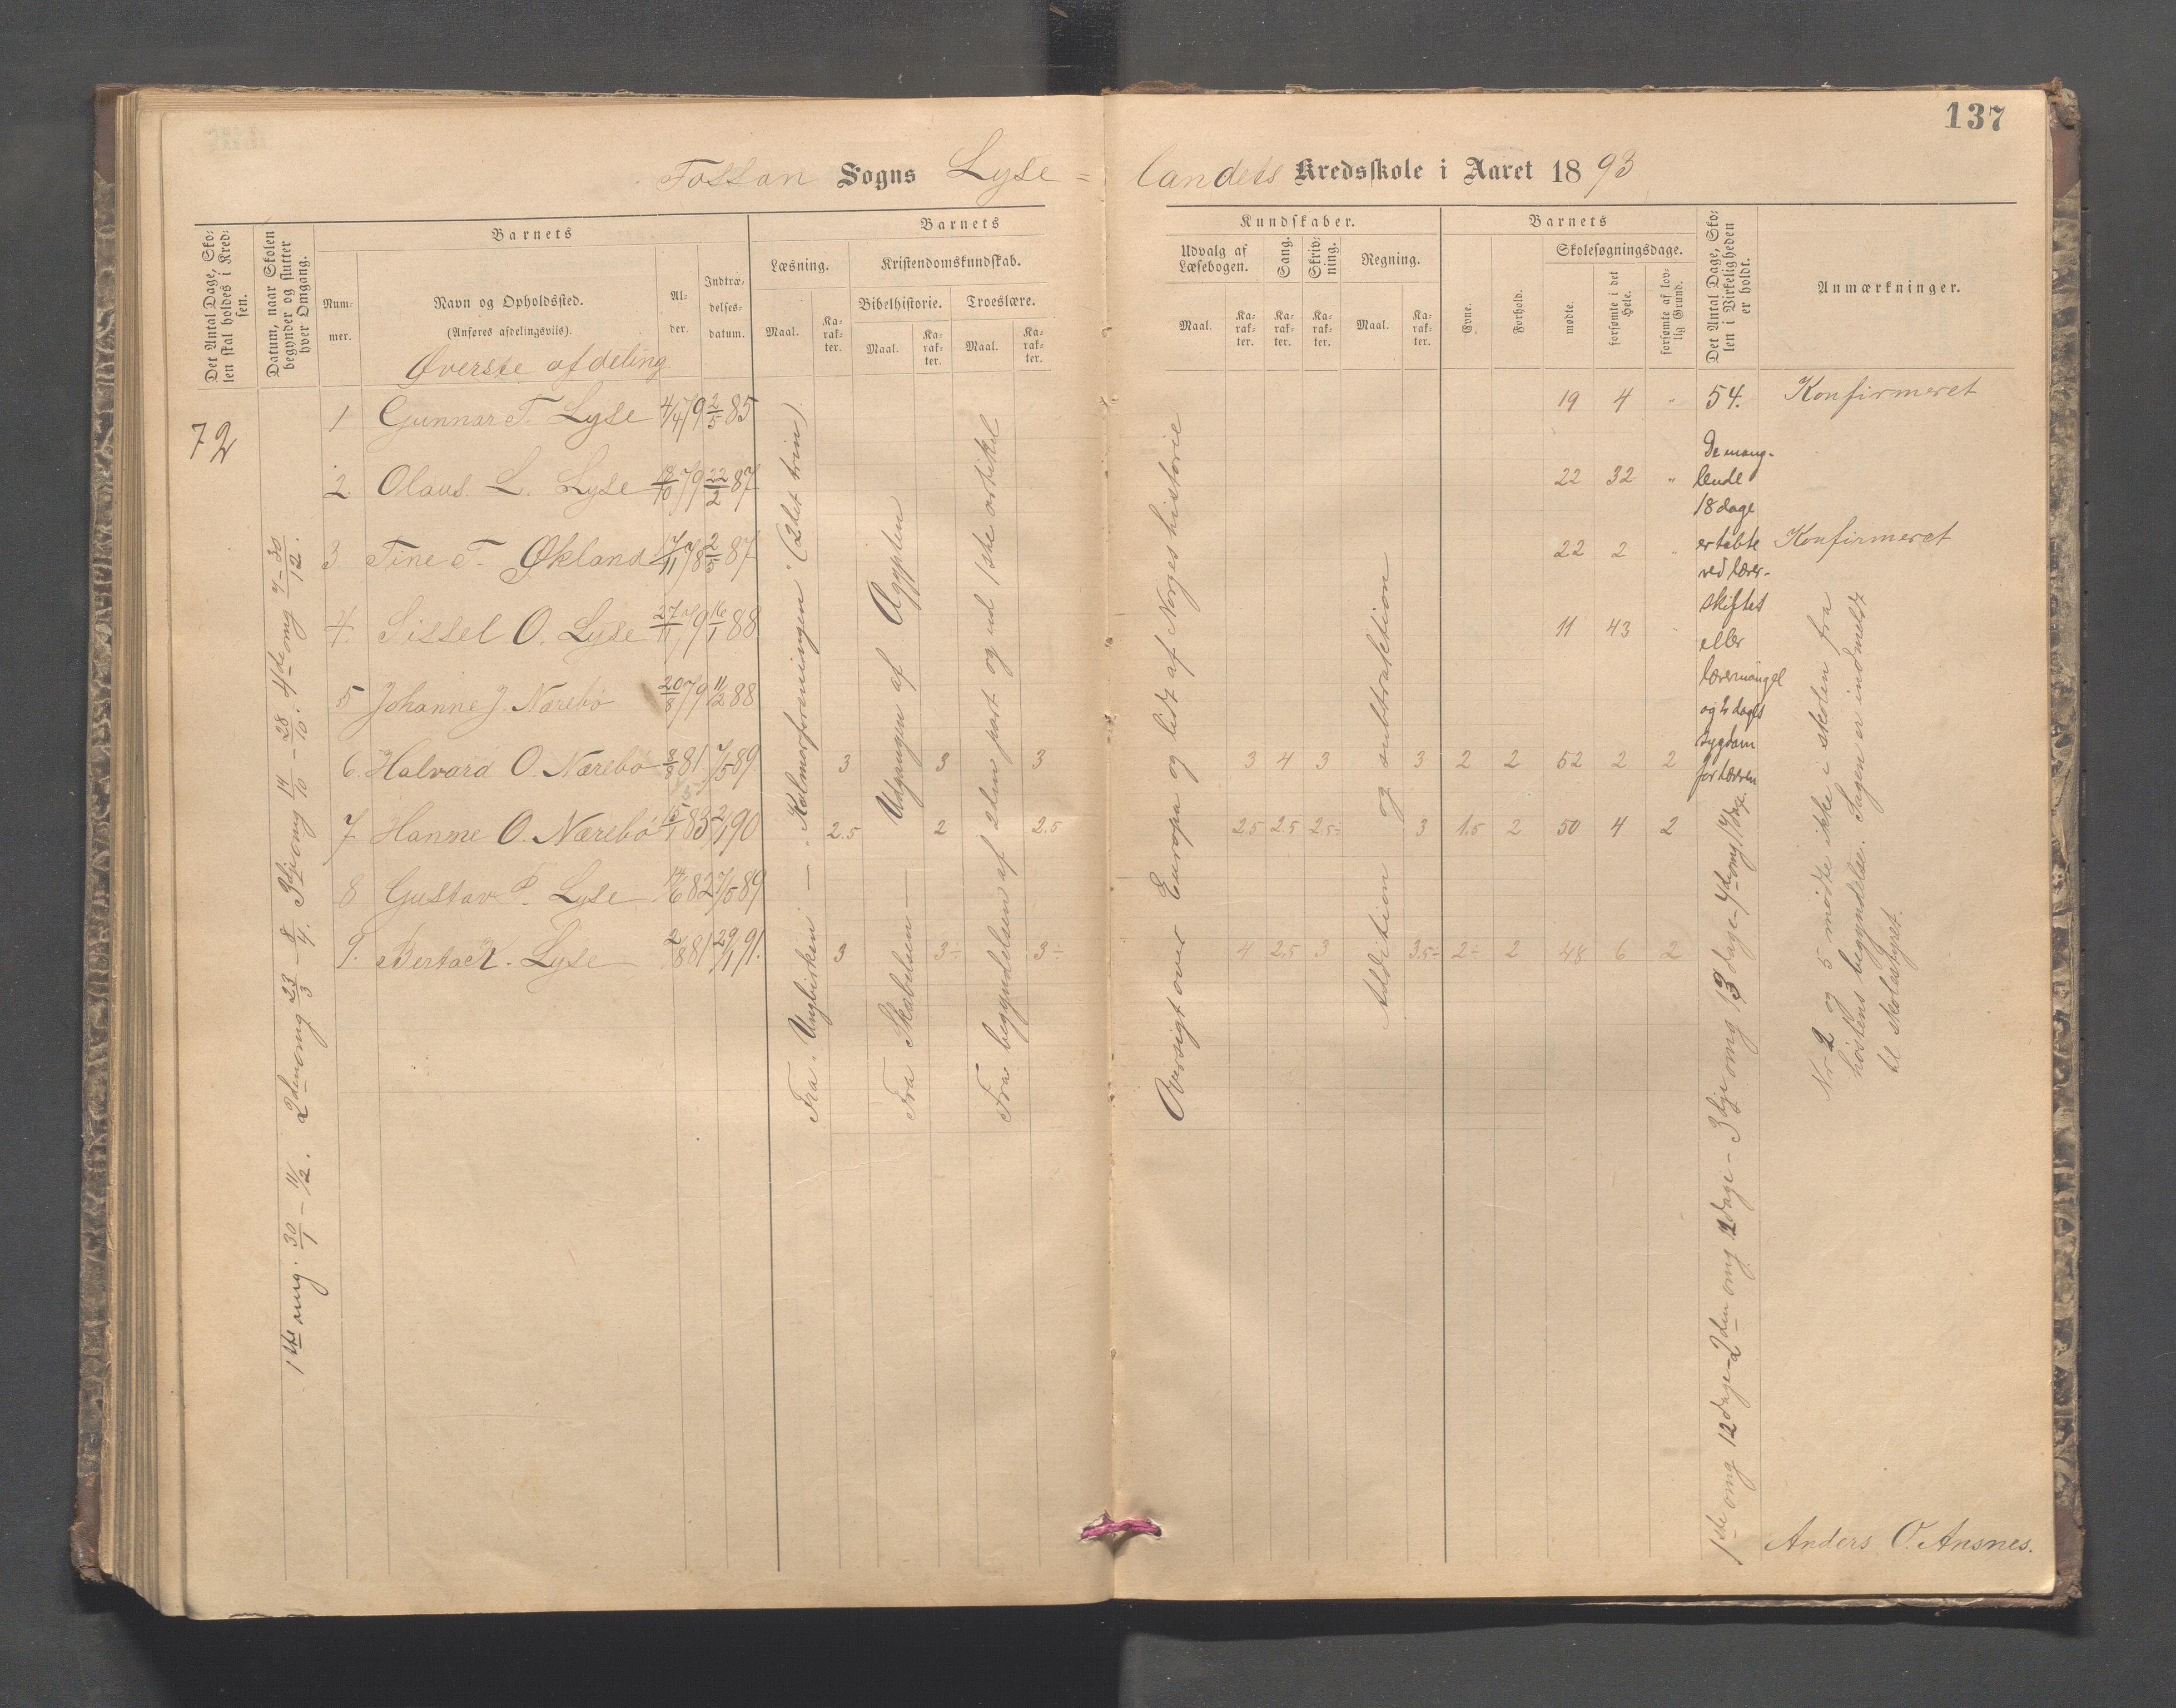 137
Fossan Sogns Lyse=
landets Kredsskole i Aaret 1893
Det Antal Dage, Sko-
len skal holdes i Kred-
sen.
Datum, naar Skolen
begynder og slutter
hver Omgang.
Barnets
Num-
mer.
Navn og Opholdssted.
(Anføres afdelingsviis).
Al-
der.
Indtræ-
delses-
datum.
Barnets
Læsning.
Maal.
Ka-
rak-
ter.
Kristendomskundskab.
Bibelhistorie.
Maal.
Ka-
rak-
ter.
Troeslære.
Maal.
Ka-
rak-
ter.
Kundskaber.
Udvalg af
Læsebogen.
Maal.
Ka-
rak-
ter.
Sang.
Ka-
rak-
ter.
Skriv-
ning.
Ka-
rak-
ter.
Regning.
Maal.
Ka-
rak-
ter.
Barnets
Evne.
Forhold.
Skolesøgningsdage.
mødte.
forsømte i det
Hele.
forsømte af lov-
lig Grund.
Det Antal Dage, Sko-
len i Virkeligheden
er holdt.
Anmærkninger.
Øverste afdeling
72
1 Gunnar T. Lyse 4/4 79 2/5 85 19 4 " 54. Konfirmeret
2 Olaus L. Lyse 79 22/2 87 22 32 "
3 Tine T. Økland 17/11 78 2/5 87 22 2 " Konfirmeret
4. Sissel O. Lyse 27/11 79 16/1 88 11 43
5 Johanne J. Nærebø 79 11/2 88
6. Halvard O. Nærebø 81 7/5 89 3 3 3 3 4 3 3 2 2 52 2 2
7 Hanne O. Nærebø 15/1 83 2/1 90 2.5 2 2.5 2.5 2.5 2.5÷ 3 1.5 2 50 4 2
8 Gustav P. Lyse 14/6 82 7/5 89
9. Berta K. Lyse 2/8 81 29/1 91. 3 3÷ 3÷ 4 2.5 3 3.5÷ 2÷ 2 48 6 2
De mang-
lende
18 dage
er tabte
ved lærer-
skiftet
eller
lærermangel
og 2 dages
sygdom
for læreren
1ste omg. 30/1 – 11/2. 2den omg 23/3 – 8/4. 3dje omg 14/10 – 28/10. 4de omg 4 – 30/12.
Fra "Ungbirken" — "Kalmarforeningen" (2det trin)
Fra Skabelsen — Udgangen af Ægypten
Fra begyndelsen af 2den part og ind 1ste artikel
Oversigt over Europa og lidt af Norges historie
Addition og subtraktion
1ste omg 12 dage – 2den omg 12 dage – 3dje omg 13 dage – 4de omg 17 dage.
Nr 2 og 5 mødte ikke i skolen fra
høstens begyndelse. Sagen er indmeldt
til skolestyret.
Anders O. Ansnes.